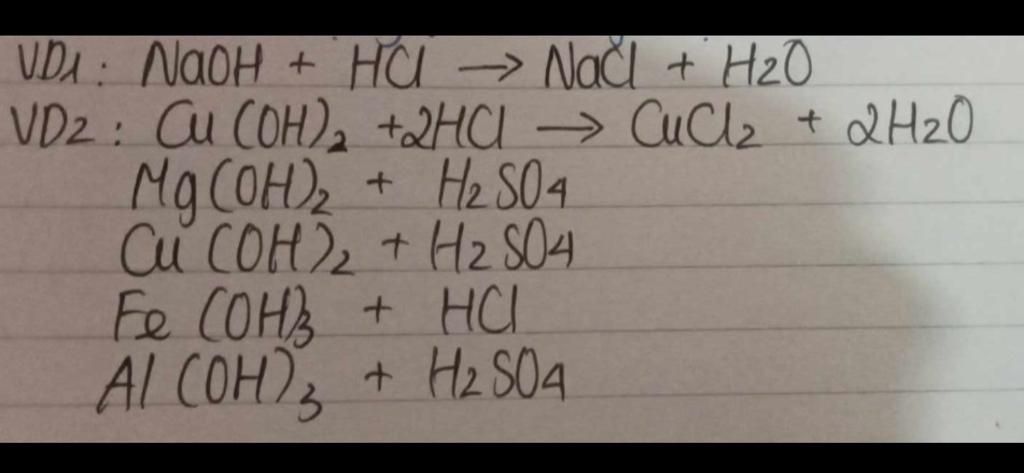 VD1: NaOH + HCl → NaCl + H2O
VD2: Cu(OH)2 + 2HCl → CuCl2 + 2H2O
Mg(OH)2 + H2SO4
Cu(OH)2 + H2SO4
Fe(OH)3 + HCl
Al(OH)3 + H2SO4